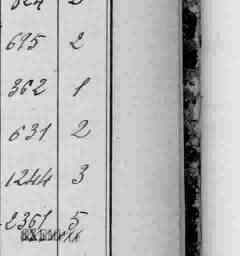 695 2
362 1
631 2
1244 3
2361 5